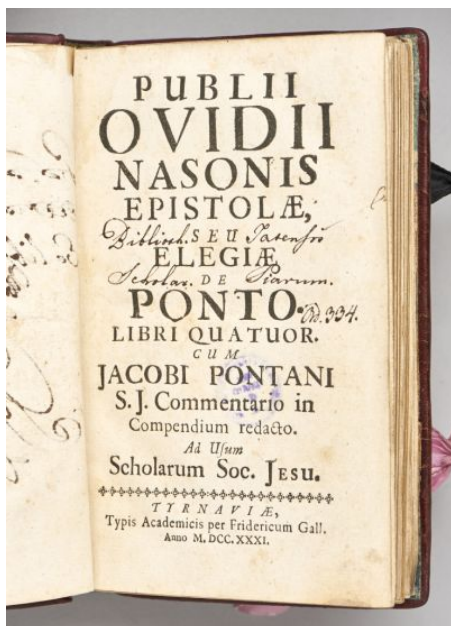 PUBLII
OVIDII
NASONIS
EPISTOLÆ,
Biblioth. SEU Tatensis
ELEGIÆ
Scholar. DE Piarum.
PONTO. 334.
LIBRI QUATUOR.
CUM
JACOBI PONTANI
S. J. Commentario in
Compendium redacto.
Ad Uſum
Scholarum Soc. JESU.
TYRNAVIÆ,
Typis Academicis per Fridericum Gall.
Anno M. DCC. XXXI.